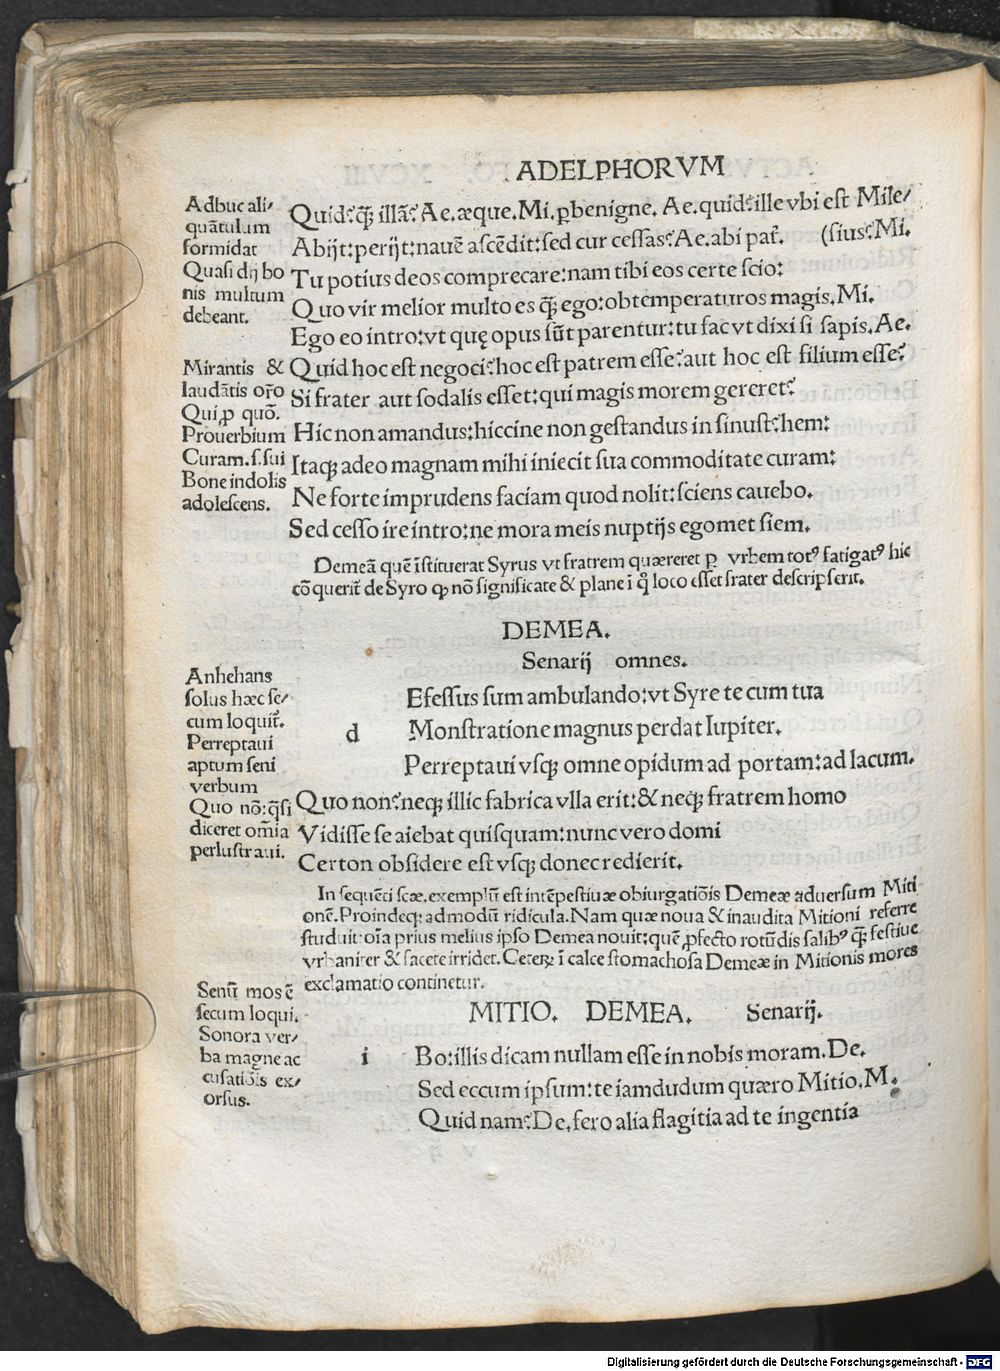 ADELPHORVM
Adhuc ali/
quātulum
formidat
Quasi dij bo
nis multum
debeant.
Mirantis &
laudātis orō
Qui ꝓ quō.
Prouerbium
Curam.s.sui
Bone indolis
adolescens.
Quid:ꝙ illā? Ae.æque.Mi.ꝑbenigne. Ae.quid:ille vbi est Mile/
Abijt:perijt:nauē ascēdit:sed cur cessas? Ae.abi pat̃. (sius? Mi.
Tu potius deos comprecare:nam tibi eos certe scio:
Quo vir melior multo es ꝙ ego:obtemperaturos magis.Mi.
Ego eo intro:vt quę opus sūt parentur:tu fac vt dixi si sapis.Ae.
Quid hoc est negoci? hoc est patrem esse? aut hoc est filium esse?
Si frater aut sodalis esset:qui magis morem gereret?
Hic non amandus:hiccine non gestandus in sinust? hem:
Itaqꝫ adeo magnam mihi iniecit sua commoditate curam:
Ne forte imprudens faciam quod nolit:sciens cauebo.
Sed cesso ire intro:ne mora meis nuptijs egomet siem.
Demeā quē īstituerat Syrus vt fratrem quæreret ꝑ vrbem totꝰ fatigatꝰ hic
cō querit̃ de Syro ꝙ nō significate & plane i q̄ loco esset frater descripserit.
DEMEA.
Senarij omnes.
Anhehans
solus hæc se/
cum loquit̃.
Perreptaui
aptum seni
verbum
Quo nō:q̄si
diceret om̄ia
perlustraui.
d
Efessus sum ambulando:vt Syre te cum tua
Monstratione magnus perdat Iupiter.
Perreptaui vsqꝫ omne opidum ad portam:ad lacum.
Quo non? neqꝫ illic fabrica vlla erit:& neqꝫ fratrem homo
Vidisse se aiebat quisquam:nunc vero domi
Certon obsidere est vsqꝫ donec redierit.
In sequēti scæ.exemplū est intēpestiuæ obiurgatiōis Demeæ aduersum Miti
onē.Proindeqꝫ admodū ridicula.Nam quæ noua & inaudita Mitioni referre
studuit oīa prius melius ipso Demea nouit:quē ꝓfecto rotūdis salibꝰ ꝙ festiue
vrbaniter & facete irridet.Ceteꝝ ī calce stomachosa Demeæ in Mitionis mores
exclamatio continetur.
MITIO. DEMEA. Senarij.
Senū mos ē
secum loqui.
Sonora ver/
ba magne ac
cusatiōis ex/
orsus.
i
Bo:illis dicam nullam esse in nobis moram.De.
Sed eccum ipsum:te iamdudum quæro Mitio.M.
Quid nam? De.fero alia flagitia ad te ingentia
Digitalisierung gefördert durch die Deutsche Forschungsgemeinschaft - DFG